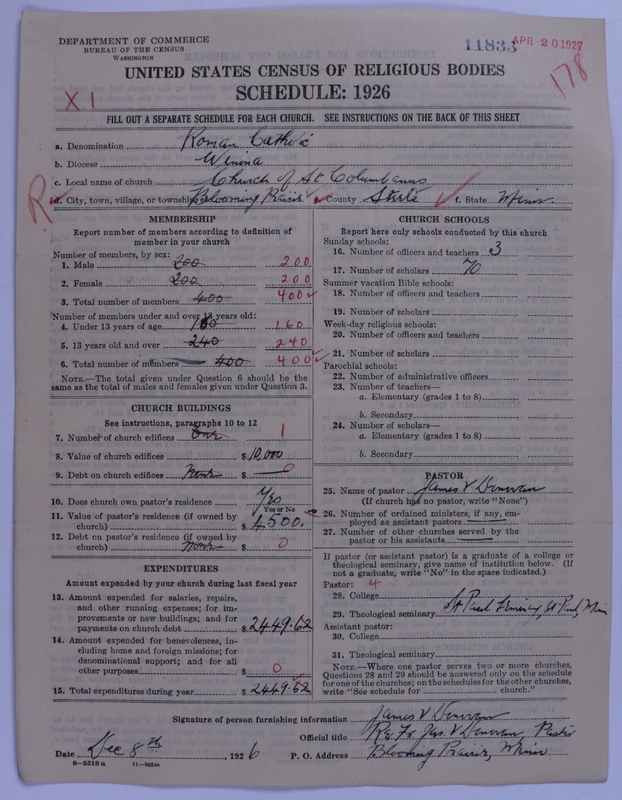 DEPARTMENT OF COMMERCE
BUREAU OF THE CENSUS
WASHINGTON
11833
APR 20 1927
178
UNITED STATES CENSUS OF RELIGIOUS BODIES
SCHEDULE: 1926
X 1
FILL OUT A SEPARATE SCHEDULE FOR EACH CHURCH. SEE INSTRUCTIONS ON THE BACK OF THIS SHEET
a. Denomination Roman Catholic
b. Diocese Winona
c. Local name of church Church of St Columbanus
R
d. City, town, village, or township Blooming Prairie e. County Steele f. State Minn.
MEMBERSHIP
Report number of members according to definition of
member in your church
Number of members, by sex:
1. Male 200 200
2. Female 200 200
3. Total number of members 400 400
Number of members under and over 13 years old:
4. Under 13 years of age 160 160
5. 13 years old and over 240 240
6. Total number of members 400 400
NOTE.—The total given under Question 6 should be the
same as the total of males and females given under Question 3.
CHURCH BUILDINGS
See instructions, paragraphs 10 to 12
7. Number of church edifices One 1
8. Value of church edifices $10,000
9. Debt on church edifices None $ 0
10. Does church own pastor's residence Yes
Yes or No
11. Value of pastor's residence (if owned by
church) $4500.
12. Debt on pastor's residence (if owned by
church) None $ 0
EXPENDITURES
Amount expended by your church during last fiscal year
13. Amount expended for salaries, repairs,
and other running expenses; for im-
provements or new buildings; and for
payments on church debt $2449.62
14. Amount expended for benevolences, in-
cluding home and foreign missions; for
denominational support; and for all
other purposes $ 0
15. Total expenditures during year $2449.62
CHURCH SCHOOLS
Report here only schools conducted by this church
Sunday schools:
16. Number of officers and teachers 3
17. Number of scholars 70
Summer vacation Bible schools:
18. Number of officers and teachers
19. Number of scholars
Week-day religious schools:
20. Number of officers and teachers
21. Number of scholars
Parochial schools:
22. Number of administrative officers
23. Number of teachers—
a. Elementary (grades 1 to 8)
b. Secondary
24. Number of scholars—
a. Elementary (grades 1 to 8)
b. Secondary
PASTOR
25. Name of pastor James V Donovan
(If church has no pastor, write "None")
26. Number of ordained ministers, if any, em-
ployed as assistant pastors
27. Number of other churches served by the
pastor or his assistants
If pastor (or assistant pastor) is a graduate of a college or
theological seminary, give name of institution below. (If
not a graduate, write "No" in the space indicated.)
Pastor: 4
28. College
29. Theological seminary St Paul Seminary, St Paul, Minn
Assistant pastor:
30. College
31. Theological seminary
NOTE.—Where one pastor serves two or more churches,
Questions 28 and 29 should be answered only on the schedule
for one of the churches; on the schedules for the other churches,
write "See schedule for church."
Signature of person furnishing information James V Donovan
Official title Rev. Fr. Jas. V Donovan, Pastor
Date Dec 8th, 1926 P. O. Address Blooming Prairie, Minn.
8—5518a 11—9684